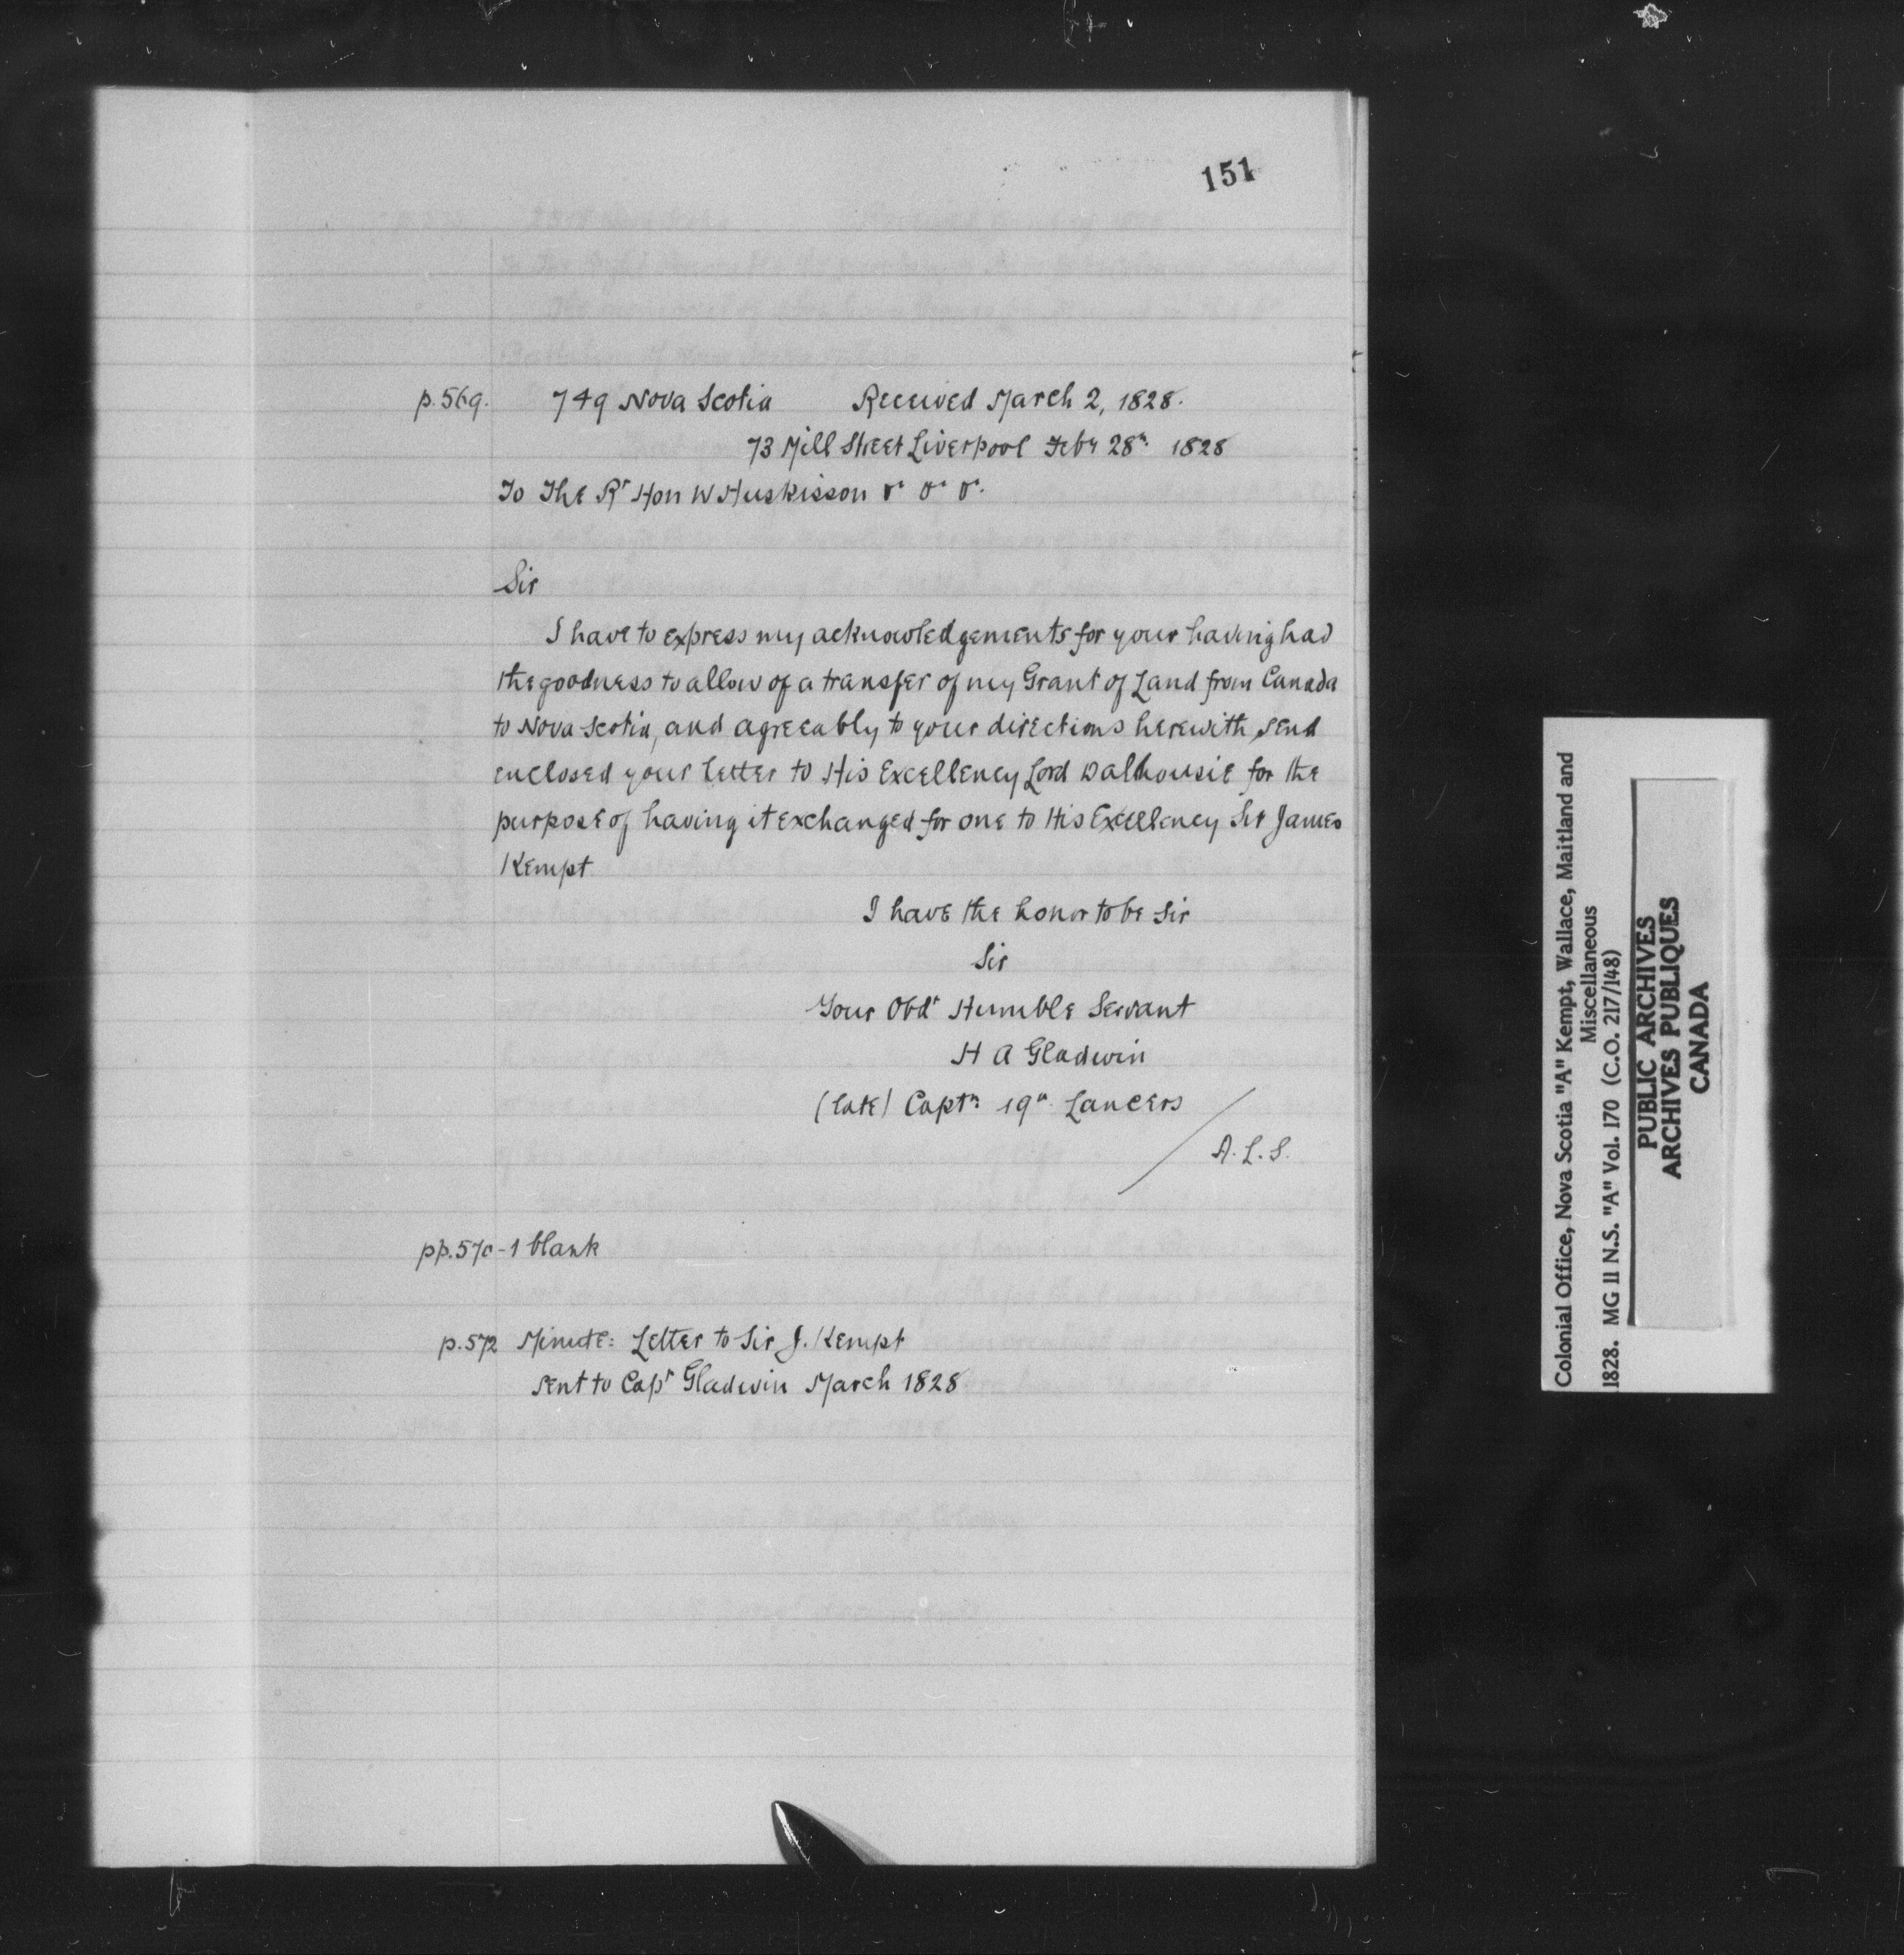 151
p.569. 749 Nova Scotia Received March 2, 1828.
73 Mill Street Liverpool Feby 28th 1828
To The Rt Hon W Huskisson &c &c &c.
Sir
I have to express my acknowledgements for your having had
the goodness to allow of a transfer of my Grant of Land from Canada
to Nova Scotia, and agreeably to your directions herewith send
enclosed your letter to His Excellency Lord Dalhousie for the
purpose of having it exchanged for one to His Excellency Sir James
Kempt
I have the honor to be Sir
Sir
Your Obdt Humble Servant
H A Gladwin
(late) Captn 19th Lancers
A.L.S.
pp.570-1 blank
p.572 Minute: Letter to Sir J. Kempt
sent to Capt Gladwin March 1828
Colonial Office, Nova Scotia "A" Kempt, Wallace, Maitland and
Miscellaneous
1828. MG 11 N.S. "A" Vol. 170 (C.O. 217/148)
PUBLIC ARCHIVES
ARCHIVES PUBLIQUES
CANADA